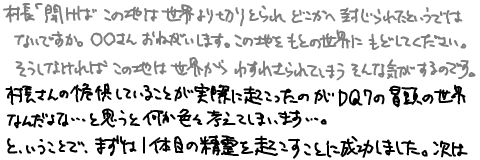 村長「聞けば この地は 世界より切りとられ どこかへ 封じられたというでは
ないですか。○○さん おねがいします。この地を もとの世界に もどしてください。
そうしなければ この地は 世界から わすれさられてしまう そんな気がするのです。
村長さんの危惧していることが実際に起こったのがDQ7の冒頭の世界
なんだよな…と思うと何か色々考えてしまいます…。
と、いうことで、まずは1体目の精霊を起こすことに成功しました。次は